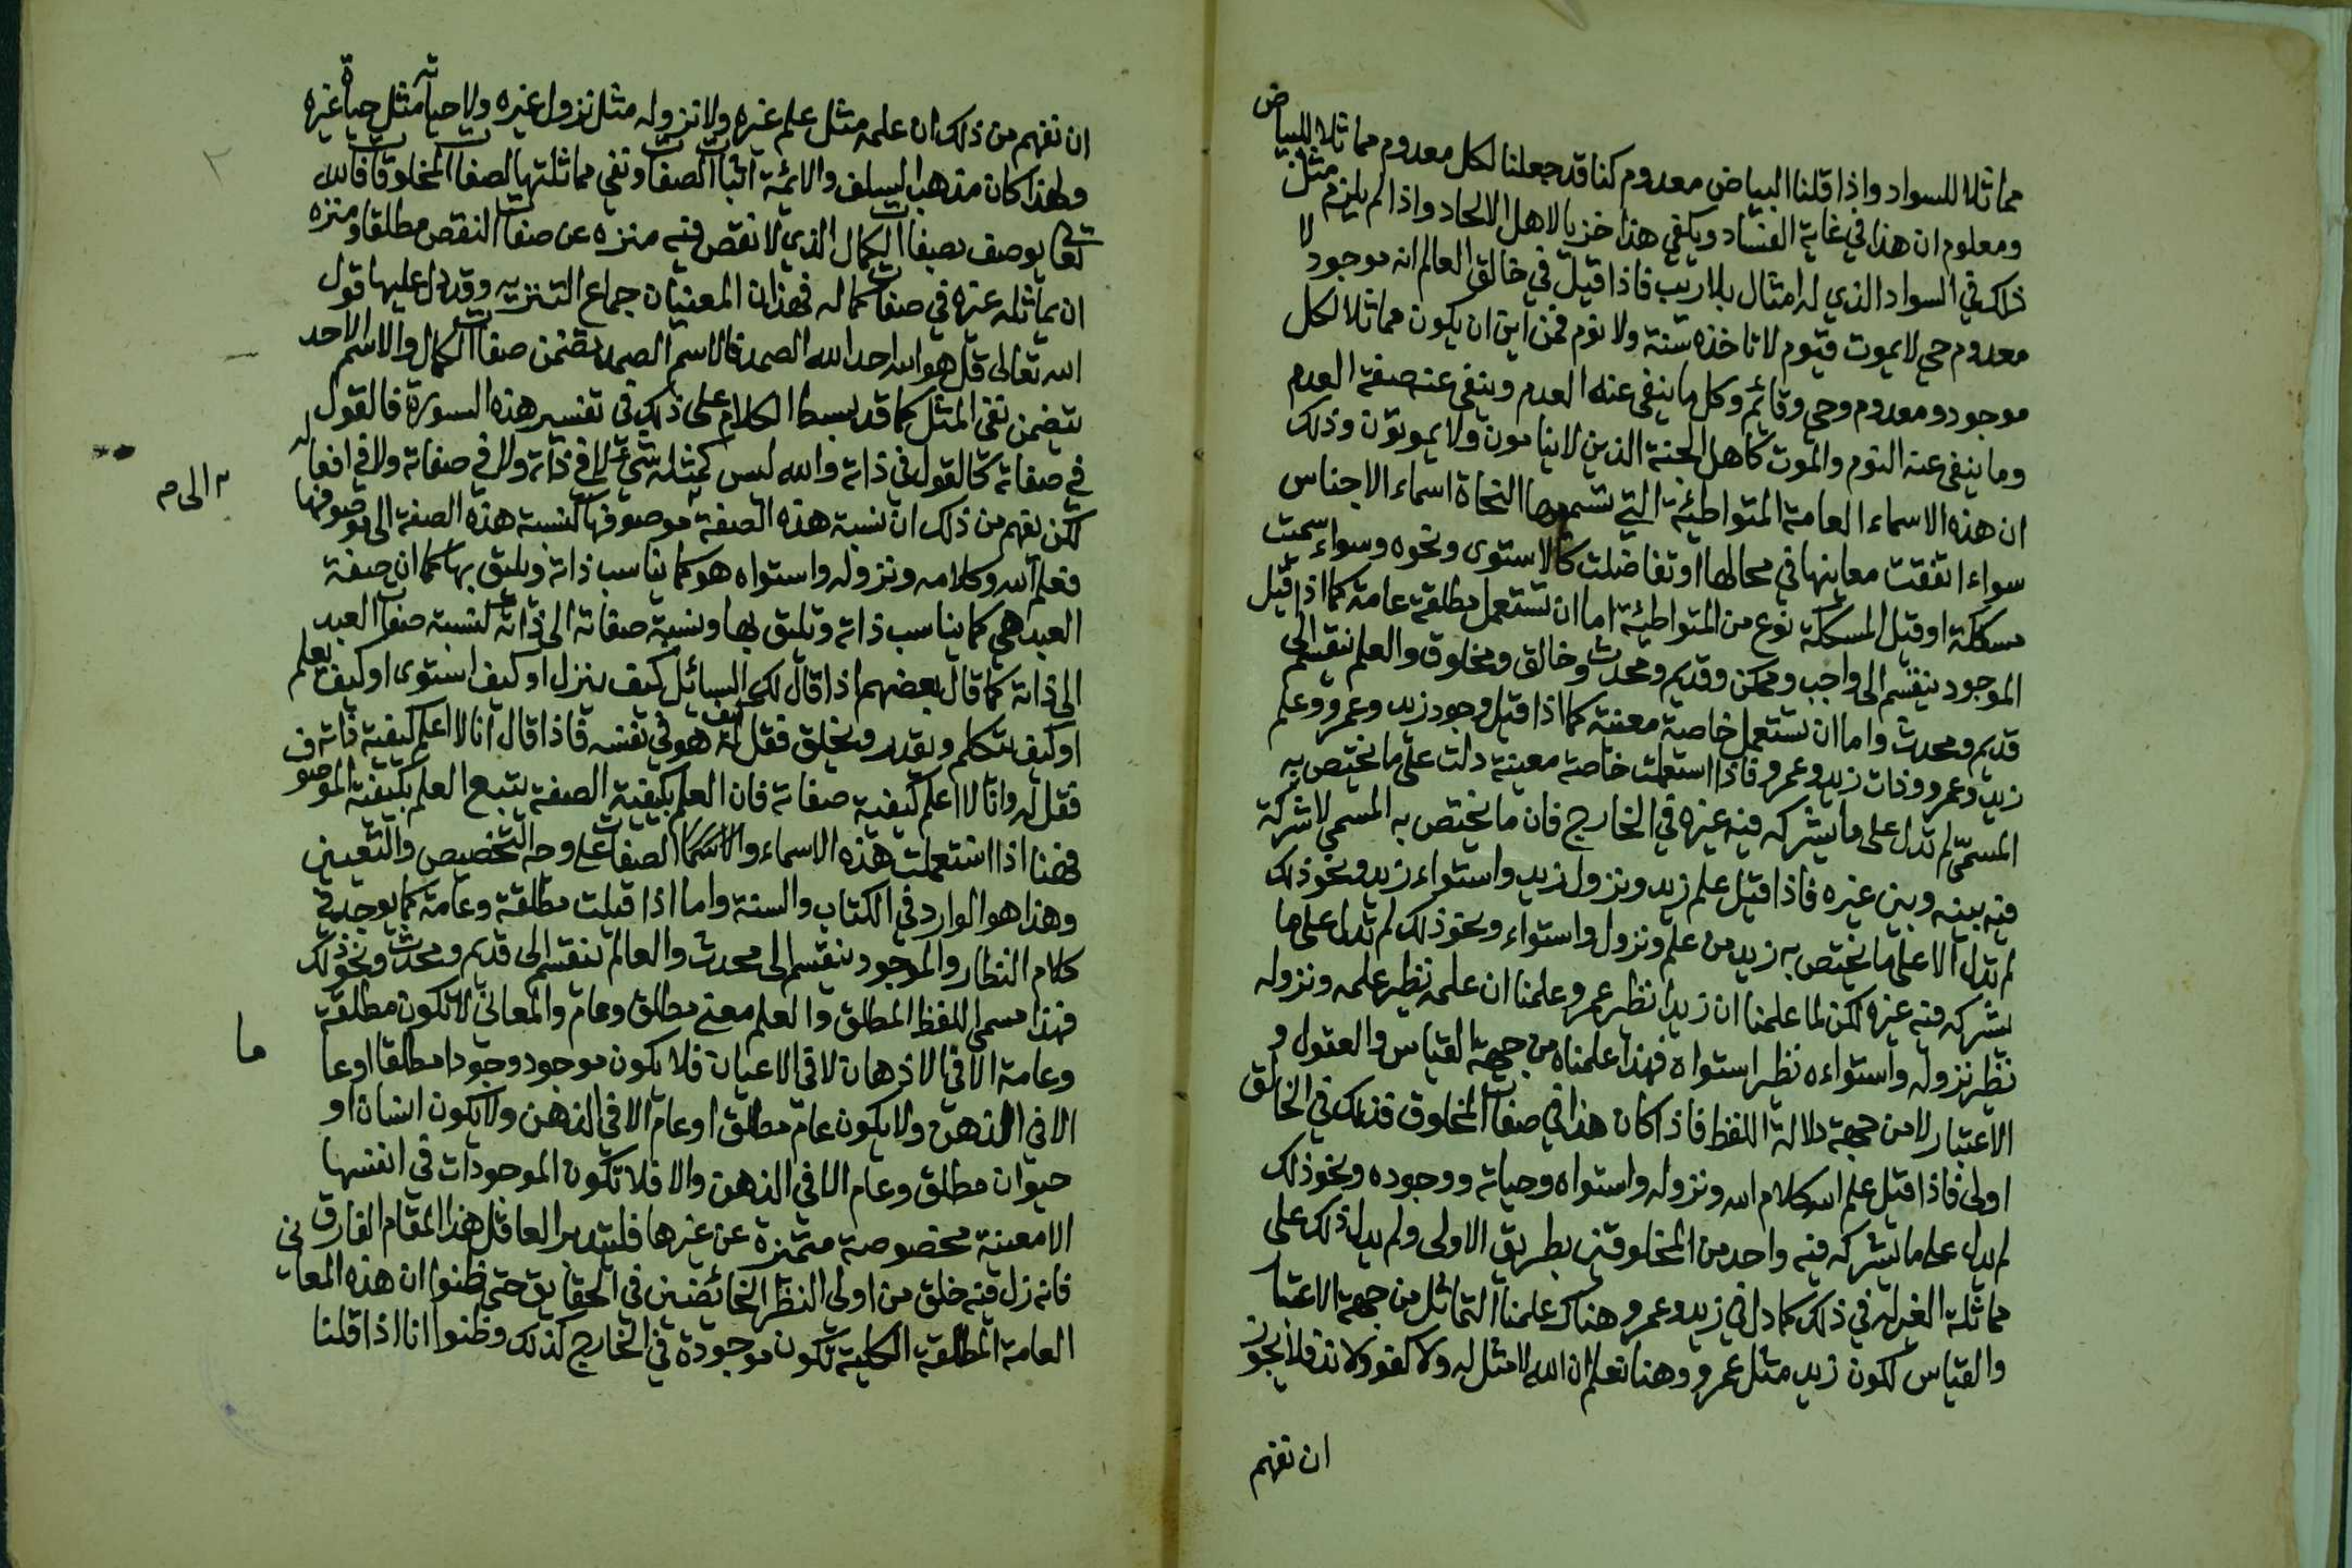 مماثلا للسواد واذا قلنا البياض معدوم كنا قد جعلنا لكل معدوم مماثلا للبياض
ومعلوم ان هذا في غاية الفساد ويكفي هذا خزيا لاهل الالحاد واذا لم يلزم مثل
ذلك في السواد الذي له امثال بلا ريب فاذا قيل في خالق العالم انه موجود لا
معدوم حي لا يموت قيوم لا تاخذه سنة ولا نوم فمن اين ان يكون مماثلا لكل
موجود ومعدوم وحي وقائم وكل ما ينفى عنه العدم وينفى عنه صفة العدم
وما ينفى عنه النوم والموت كاهل الجنة الذين لا ينامون ولا يموتون وذلك
ان هذه الاسماء العامة المتواطئة التي تسميها النحاة اسماء الاجناس
سواء اتفقت معانيها في محالها او تفاضلت كالاستوى ونحوه وسواء سميت
مسككة او قيل المسككة نوع من المتواطئة اما ان تستعمل مطلقة عامة كما اذا قيل
الموجود ينقسم الى واجب وممكن وقديم ومحدث وخالق ومخلوق والعلم ينقسم الى
قديم ومحدث واما ان تستعمل خاصة معينة كما اذا قيل وجود زيد وعمرو وعلم
زيد وعمرو وذات زيد وعمرو فاذا استعملت خاصة معينة دلت على ما يختص به
المسمى لم تدل على ما يشركه فيه غيره في الخارج فان ما يختص به المسمى لا شركة
فيه بينه وبين غيره فاذا قيل علم زيد ونزول زيد واستواء زيد ونحو ذلك
لم تدل الا على ما يختص به زيد من علم ونزول واستواء ونحو ذلك لم تدل على ما
يشركه فيه غيره لكن لما علمنا ان زيدا نظير عمرو علمنا ان علمه نظير علمه ونزوله
نظير نزوله واستواءه نظير استواه فهذا علمناه من جهة القياس والعقول و
الاعتبار لا من جهة دلالة اللفظ فاذا كان هذا في صفات المخلوق فذلك في الخالق
اولى فاذا قيل علم الله وكلام الله ونزوله واستواه وحياته ووجوده ونحو ذلك
لم يدل على ما يشركه فيه واحد من المخلوقين بطريق الاولى ولم يدل ذلك على
مماثلة الغير له في ذلك كما دل في زيد وعمرو وهناك علمنا التماثل من جهة الاعتبا
والقياس لكون زيد مثل عمرو وهنا نعلم ان الله لا مثل له ولا كفو ولا ند فلا يجوز
ان تفهم
ان تفهم من ذلك ان علمه مثل علم غيره ولا نزوله مثل نزول غيره ولا حياته مثل حياة غيره
ولهذا كان مذهب السلف والائمة اثبات الصفات ونفي مماثلتها لصفات المخلوقات فالله
تعالى يوصف بصفات الكمال الذي لا نقص فيه منزه عن صفات النقص مطلقا ومنزه
ان يماثله غيره في صفات كماله فهذان المعنيان جماع التنزيه وقد دل عليها قول
الله تعالى قل هو الله احد الله الصمد فالاسم الصمد يتضمن صفات الكمال والاسم الاحد
يتضمن نفي المثل كما قد بسط الكلام على ذلك في تفسير هذه السورة فالقول
في صفاته كالقول في ذاته والله ليس كمثله شيء لا في ذاته ولا في صفاته ولا في افعاله
لكن يفهم من ذلك ان نسبة هذه الصفة موصوفها كنسبة هذه الصفة الى موصوفها
الى م
فعلم الله وكلامه ونزوله واستواه هو كما يناسب ذاته ويليق بها كما ان صفة
العبد هي كما يناسب ذاته وتليق بها ونسبة صفاته الى ذاته كنسبة صفات العبد
الى ذاته كما قال بعضهم اذا قال لك السائل كيف ينزل او كيف استوى او كيف يعلم
او كيف يتكلم ويقدر ويخلق فقل له كيف هو في نفسه فاذا قال انا لا اعلم كيفية ذاته
فقل له وانا لا اعلم كيفية صفاته فان العلم بكيفية الصفة يتبع العلم بكيفية الموصوف
فهنا اذا استعملت هذه الاسماء والصفات على وجه التخصيص والتعيين
وهذا هو الوارد في الكتاب والسنة واما اذا قيلت مطلقة وعامة كما يوجد في
كلام النظار والموجود ينقسم الى محدث والعالم ينقسم الى قديم ومحدث ونحو ذلك
فهذا مسمى اللفظ المطلق والعلم معنى مطلق وعام والمعاني لا تكون مطلقة
وعامة الا في الاذهان لا في الاعيان فلا يكون موجود وجودا مطلقا او عا
ما
الا في الذهن ولا يكون عام مطلق او عام الا في الذهن ولا يكون انسان او
حيوان مطلق وعام الا في الذهن والا فلا تكون الموجودات في انفسها
الا معينة مخصوصة متميزة عن غيرها فليتدبر العاقل هذا المقام الفارق
فانه زل فيه خلق من اولي النظر الخائضين في الحقايق حتى ظنوا ان هذه المعاني
العامة المطلقة الكلية تكون موجودة في الخارج كذلك وظنوا انا اذا قلنا